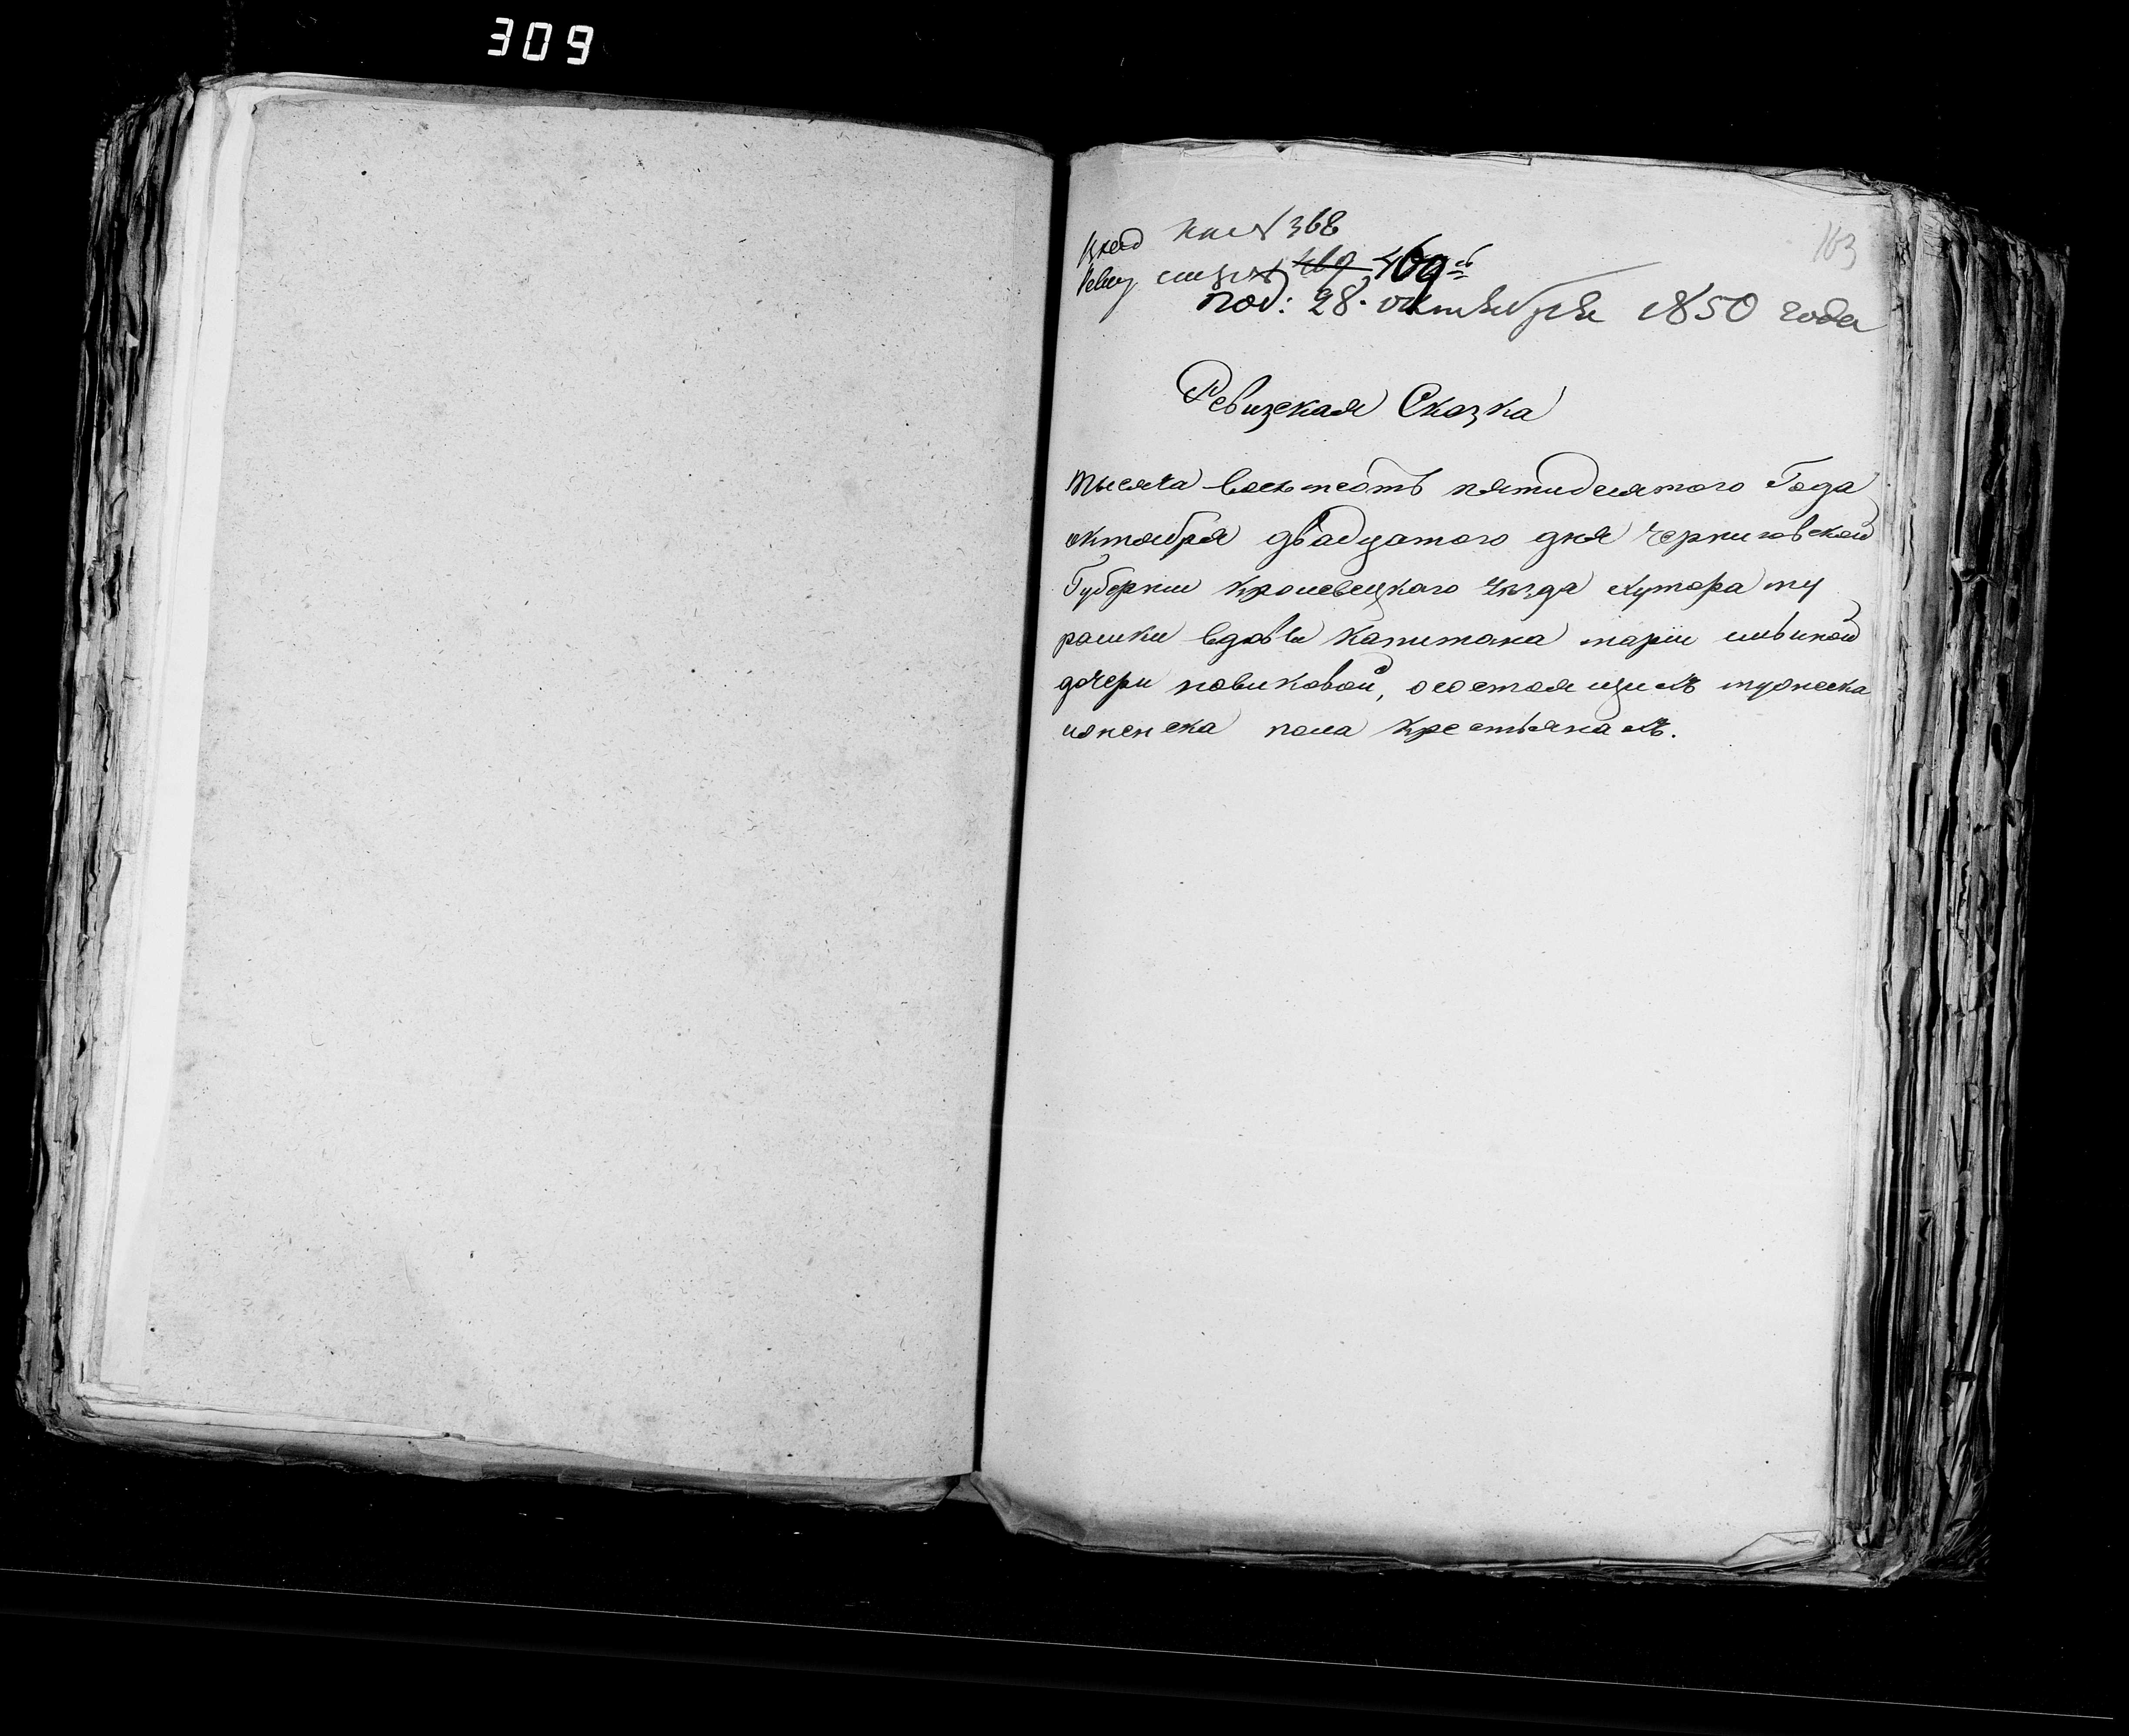 309
163
368
469
под: 28. октября 1850 года
Ревизская Сказка
тысяча восемсотъ пятидесятого Года
октября двадцатого дня Черниговской
Губернии Кролевецкого уезда хутора му
рашки вдовы Капитана марии ильиной
дочери новиковой, осостоящихъ мужеска
иженска пола крестьянахъ.